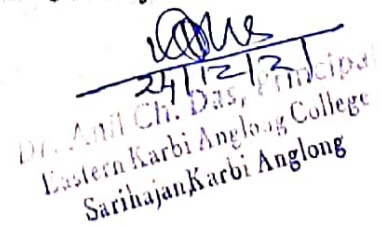 24/12/21
Dr. Anil Ch. Das, Principal
Eastern Karbi Anglong College
Sarihajan,Karbi Anglong